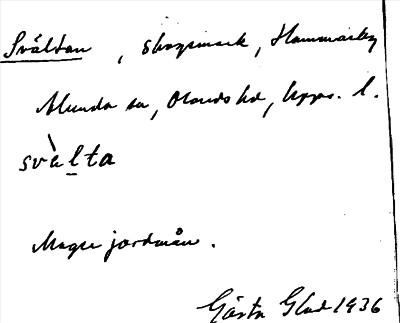 Svältan, skogsmark, Hammarby
Alunda sn, Olands hd, Upps. l.
svàlta
Mager jordmån.
Gösta Glad 1936